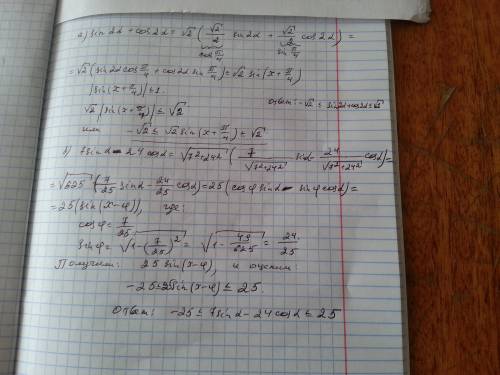 a) sin2α + cos2α = √2 (√2/2 sin2α + √2/2 cos2α) =
cos π/4 sin π/4
= √2 (sin2α cos π/4 + cos2α sin π/4) = √2 sin(x + π/4)
|sin(x + π/4)| ≤ 1.
√2 |sin(x + π/4)| ≤ √2
Ответ: -√2 ≤ sin2α+cos2α ≤ √2
или -√2 ≤ √2 sin(x + π/4) ≤ √2
b) 7sinα - 24cosα = √7²+24² (7/√7²+24² sinα - 24/√7²+24² cosα) =
= √625 (7/25 sinα - 24/25 cosα) = 25 (cosφ sinα - sinφ cosα) =
= 25 (sin(x-φ)), где:
cosφ = 7/25
sinφ = √1-(7/25)² = √1 - 49/625 = 24/25
Получим: 25 sin(x-φ), и оценим:
-25 ≤ 25sin(x-φ) ≤ 25.
Ответ: -25 ≤ 7sinα - 24cosα ≤ 25